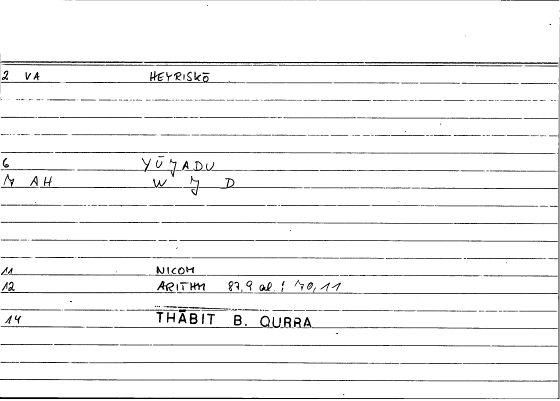 2 VA HEYRISKŌ
6 YŪJADU
7 AH W J D
11 NICOM
12 ARITHM 87,9 al. : 70,11
14 THĀBIT B. QURRA